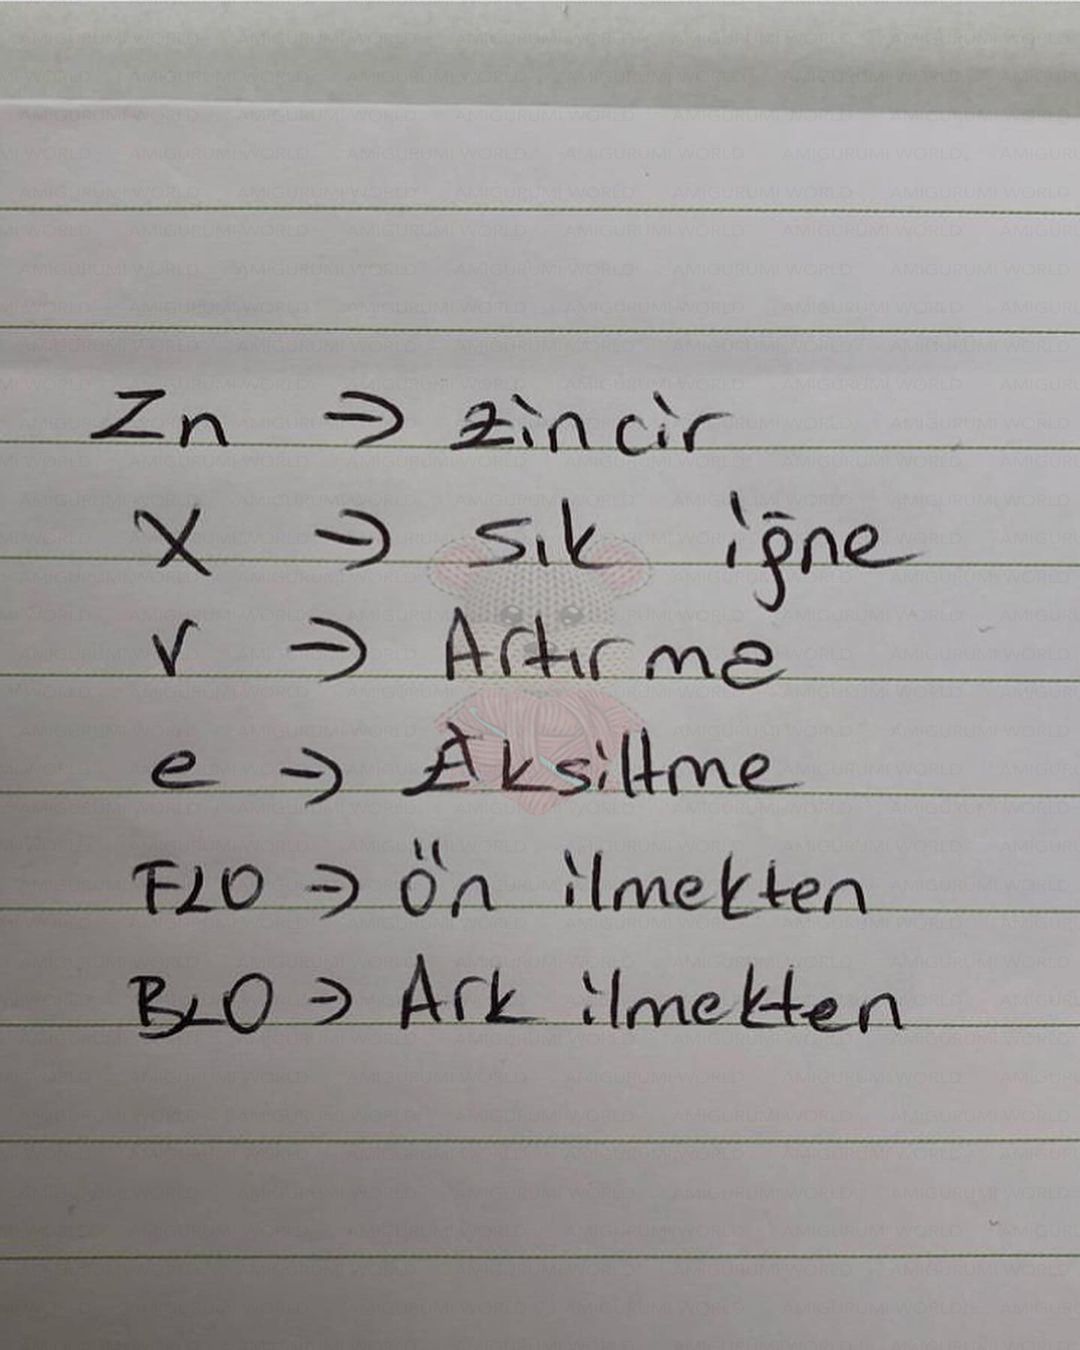 Zn → zincir
X → sık iğne
V → Artırma
e → Eksiltme
FLO → Ön ilmekten
BLO → Ark ilmekten
AMIGURUMI WORLD